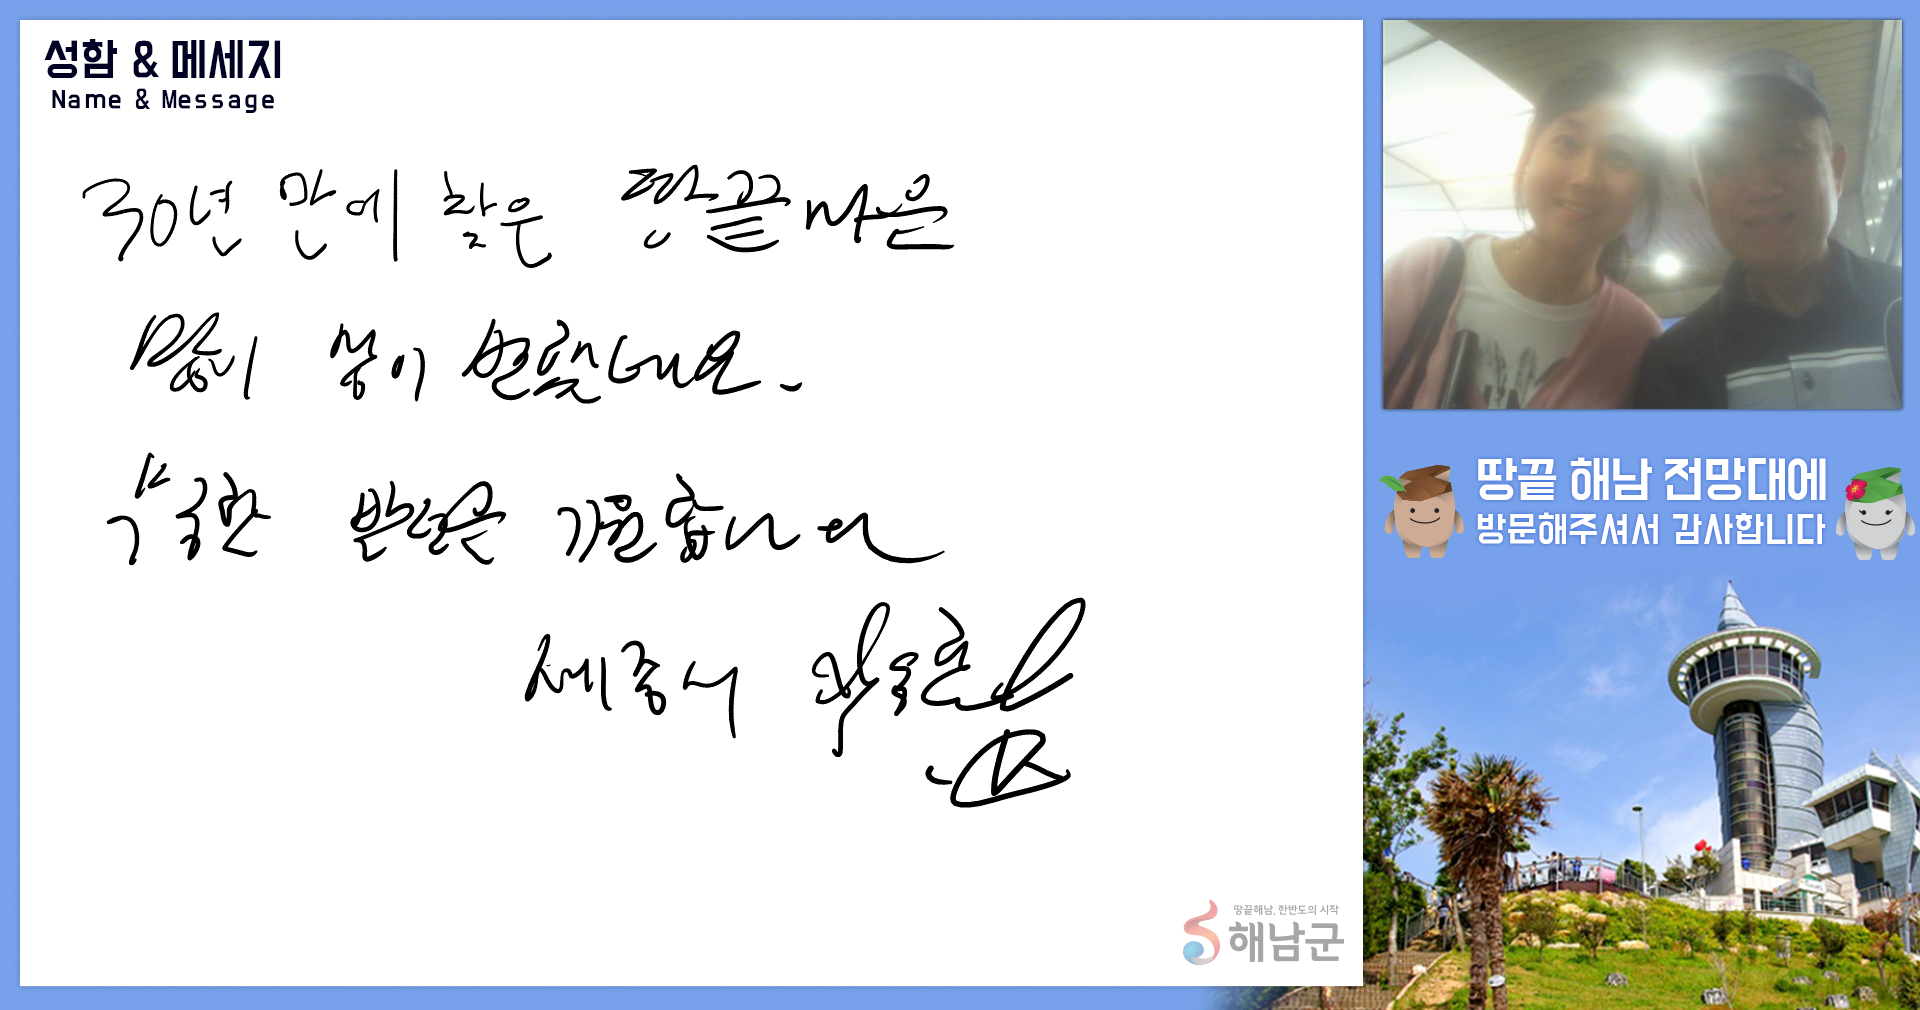 성함 & 메세지
Name & Message
30년 만에 찾은 땅끝마을
많이 성이 변했네요.
무궁한 발전을 기원합니다
세종시
땅끝 해남 전망대에
방문해주셔서 감사합니다
땅끝해남, 한반도의 시작
해남군